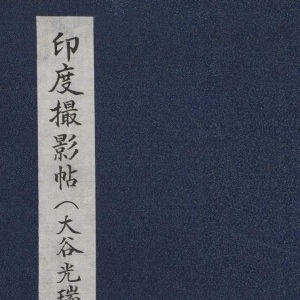 印度撮影帖（大谷光瑞